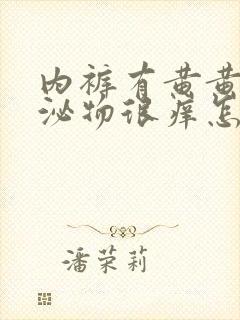 内裤有黄黄
泌物很痒怎
潘荣莉